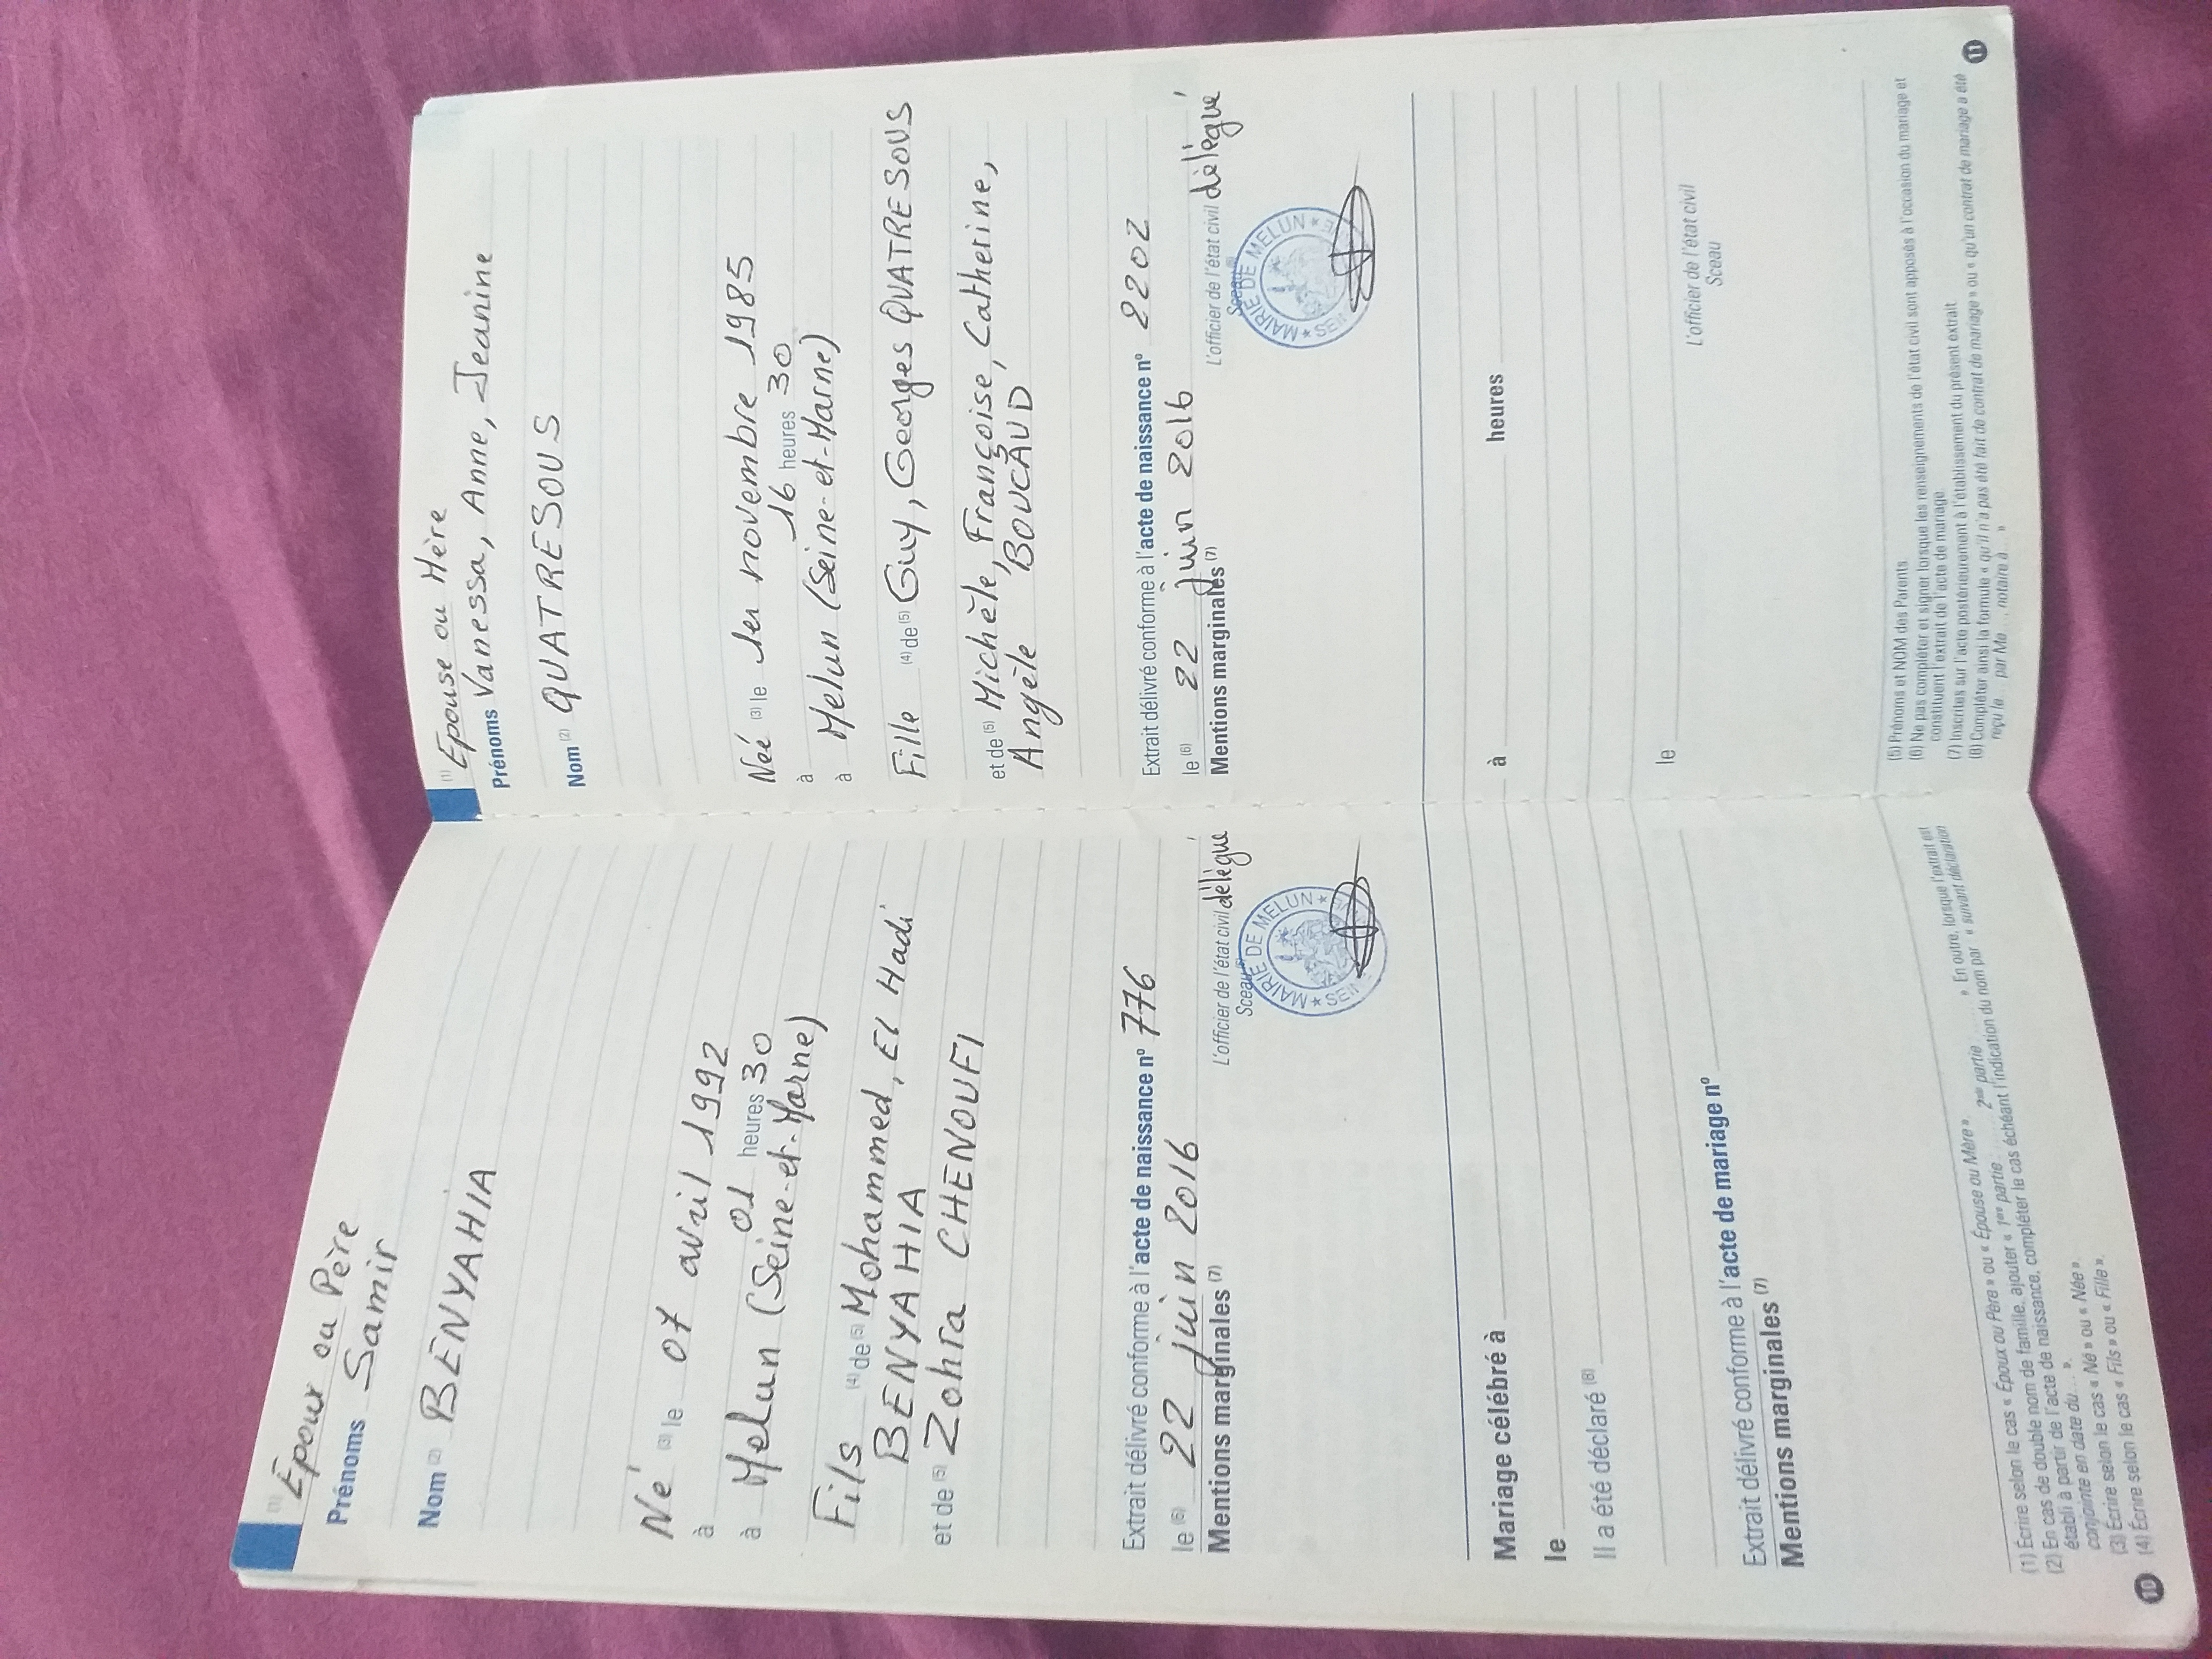 (1) Epoux ou Père
Prénoms Samir
Nom (2) BENYAHIA
Né (3) le 07 avril 1992
à 01 heures 30
à Melun (Seine-et-Marne)
Fils (4) de (5) Mohammed, El Hadi
BENYAHIA
et de (5) Zohra CHENOUFI
Extrait délivré conforme à l'acte de naissance nº 776
le (6) 22 juin 2016
Mentions marginales (7)
L'officier de l'état civil délégué
Sceau
MAIRIE DE MELUN
Mariage célébré à
le
Il a été déclaré (8)
Extrait délivré conforme à l'acte de mariage nº
Mentions marginales (7)
(1) Écrire selon le cas « Époux ou Père » ou « Épouse ou Mère ».
(2) En cas de double nom de famille, ajouter « 1ère partie ..... 2nde partie ..... ». En outre, lorsque l'extrait est
établi à partir de l'acte de naissance, compléter le cas échéant l'indication du nom par « suivant déclaration
conjointe en date du... ».
(3) Écrire selon le cas « Né » ou « Née ».
(4) Écrire selon le cas « Fils » ou « Fille ».
10
(1) Epouse ou Mère
Prénoms Vanessa, Anne, Jeanine
Nom (2) QUATRESOUS
Née (3) le 1er novembre 1985
à 16 heures 30
à Melun (Seine-et-Marne)
Fille (4) de (5) Guy, Georges QUATRESOUS
et de (5) Michèle, Françoise, Catherine,
Angèle BOUCAUD
Extrait délivré conforme à l'acte de naissance nº 2202
le (6) 22 juin 2016
Mentions marginales (7)
L'officier de l'état civil délégué
Sceau
MAIRIE DE MELUN
à heures
le
L'officier de l'état civil
Sceau
(5) Prénoms et NOM des Parents
(6) Ne pas compléter et signer lorsque les renseignements de l'état civil sont apposés à l'occasion du mariage et
constituent l'extrait de l'acte de mariage
(7) Inscrites sur l'acte postérieurement à l'établissement du présent extrait
(8) Compléter ainsi la formule « qu'il n'a pas été fait de contrat de mariage » ou « qu'un contrat de mariage a été
reçu le ... par Me ..., notaire à ... »
11